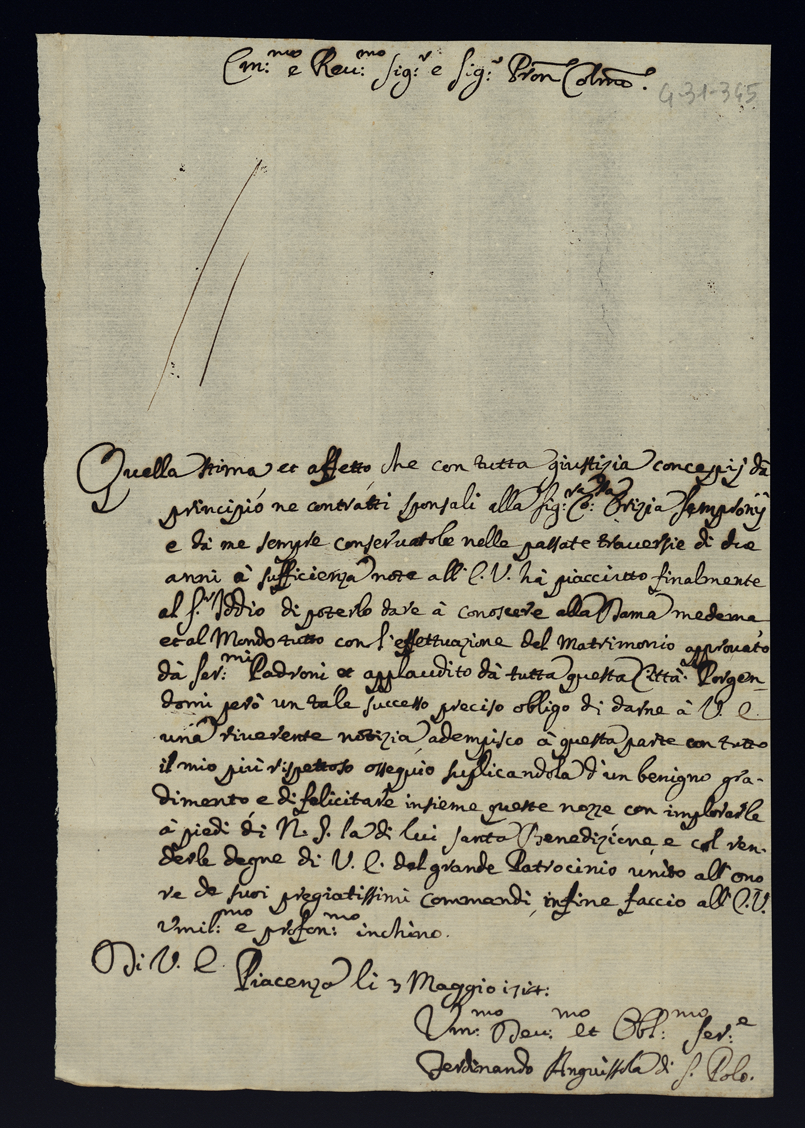 Em:mo e Reu:mo Sig:r e Sig:r Pron Colmo.
G-31-365
Quella stima et affetto che con tutta giustizia concepij dà
principio ne contratti sponsali alla Sig:ra Co:ssa Orizia Sempronij
e dà me sempre conseruatole nelle passate trauersie di due
anni à sufficienza note all' E. V. hà piacciuto finalmente
al S.r Iddio di poterlo dare à conoscere alla Dama medema
et al Mondo tutto con l'effettuazione del Matrimonio approuato
dà Ser:mi Padroni et applaudito dà tutta questa Città. Porgen-
domi però un tale successo preciso obligo di darne à V. E.
una riuerente notizia, adempisco à questa parte con tutto
il mio più rispettoso ossequio suplicandola d'un benigno gra-
dimento e di felicitare insieme queste nozze con implorarle
à piedi di N. S. la di lui Santa Benedizione, e col ren-
derle degne di V. E. del grande Patrocinio unito all' ono
re de suoi pregiatissimi commandi, infine faccio all' E. V.
vmil:mo e profon:mo inchino.
Di V. E.
Piacenza li 3 Maggio 1714:
Vm:mo Deu:mo et Obl:mo Ser:e
Ferdinando Anguissola di S. Polo.